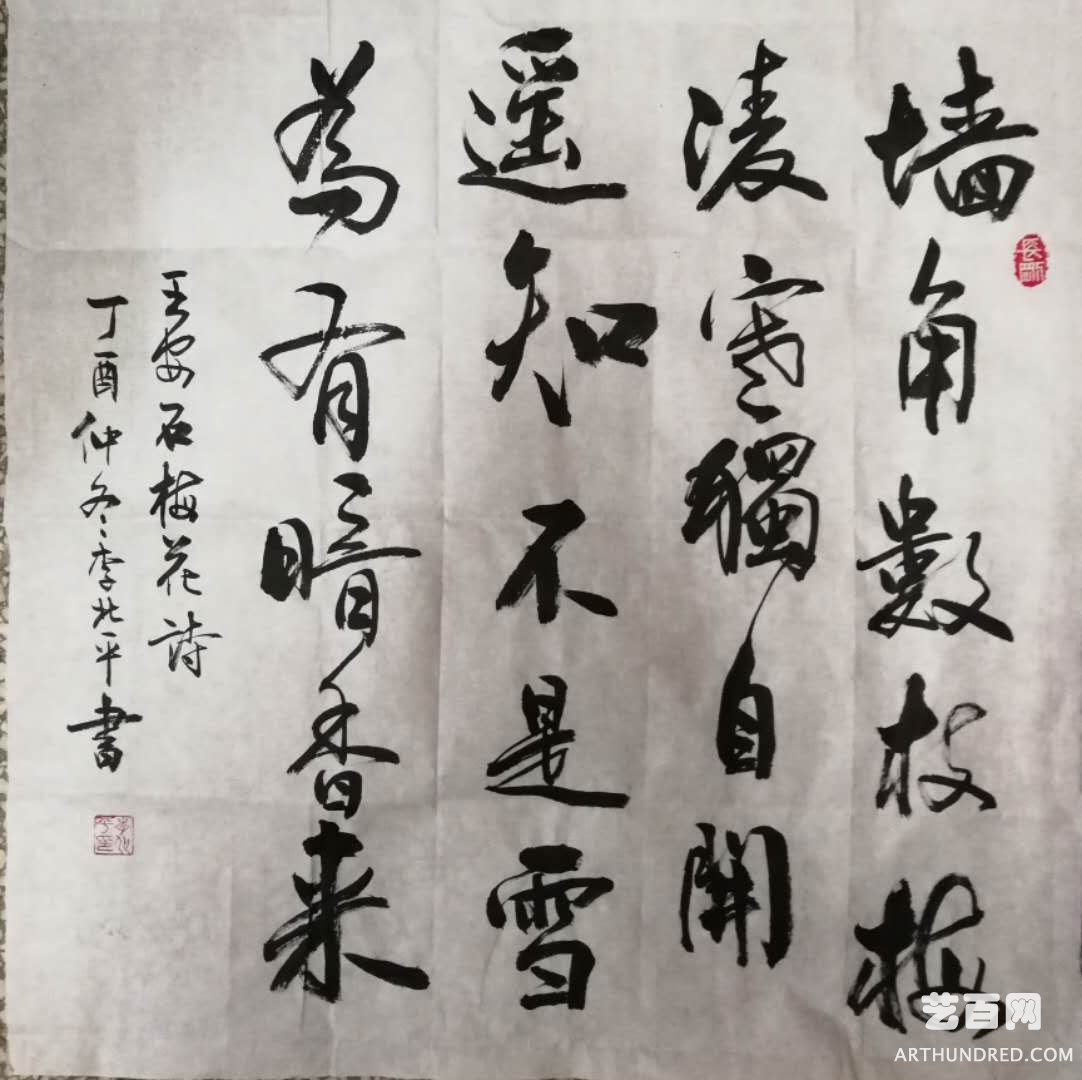 墙角數枝梅
凌寒獨自開
遥知不是雪
為有暗香来
王安石梅花詩
丁酉仲冬李北平書
艺百网
ARTHUNDRED.COM